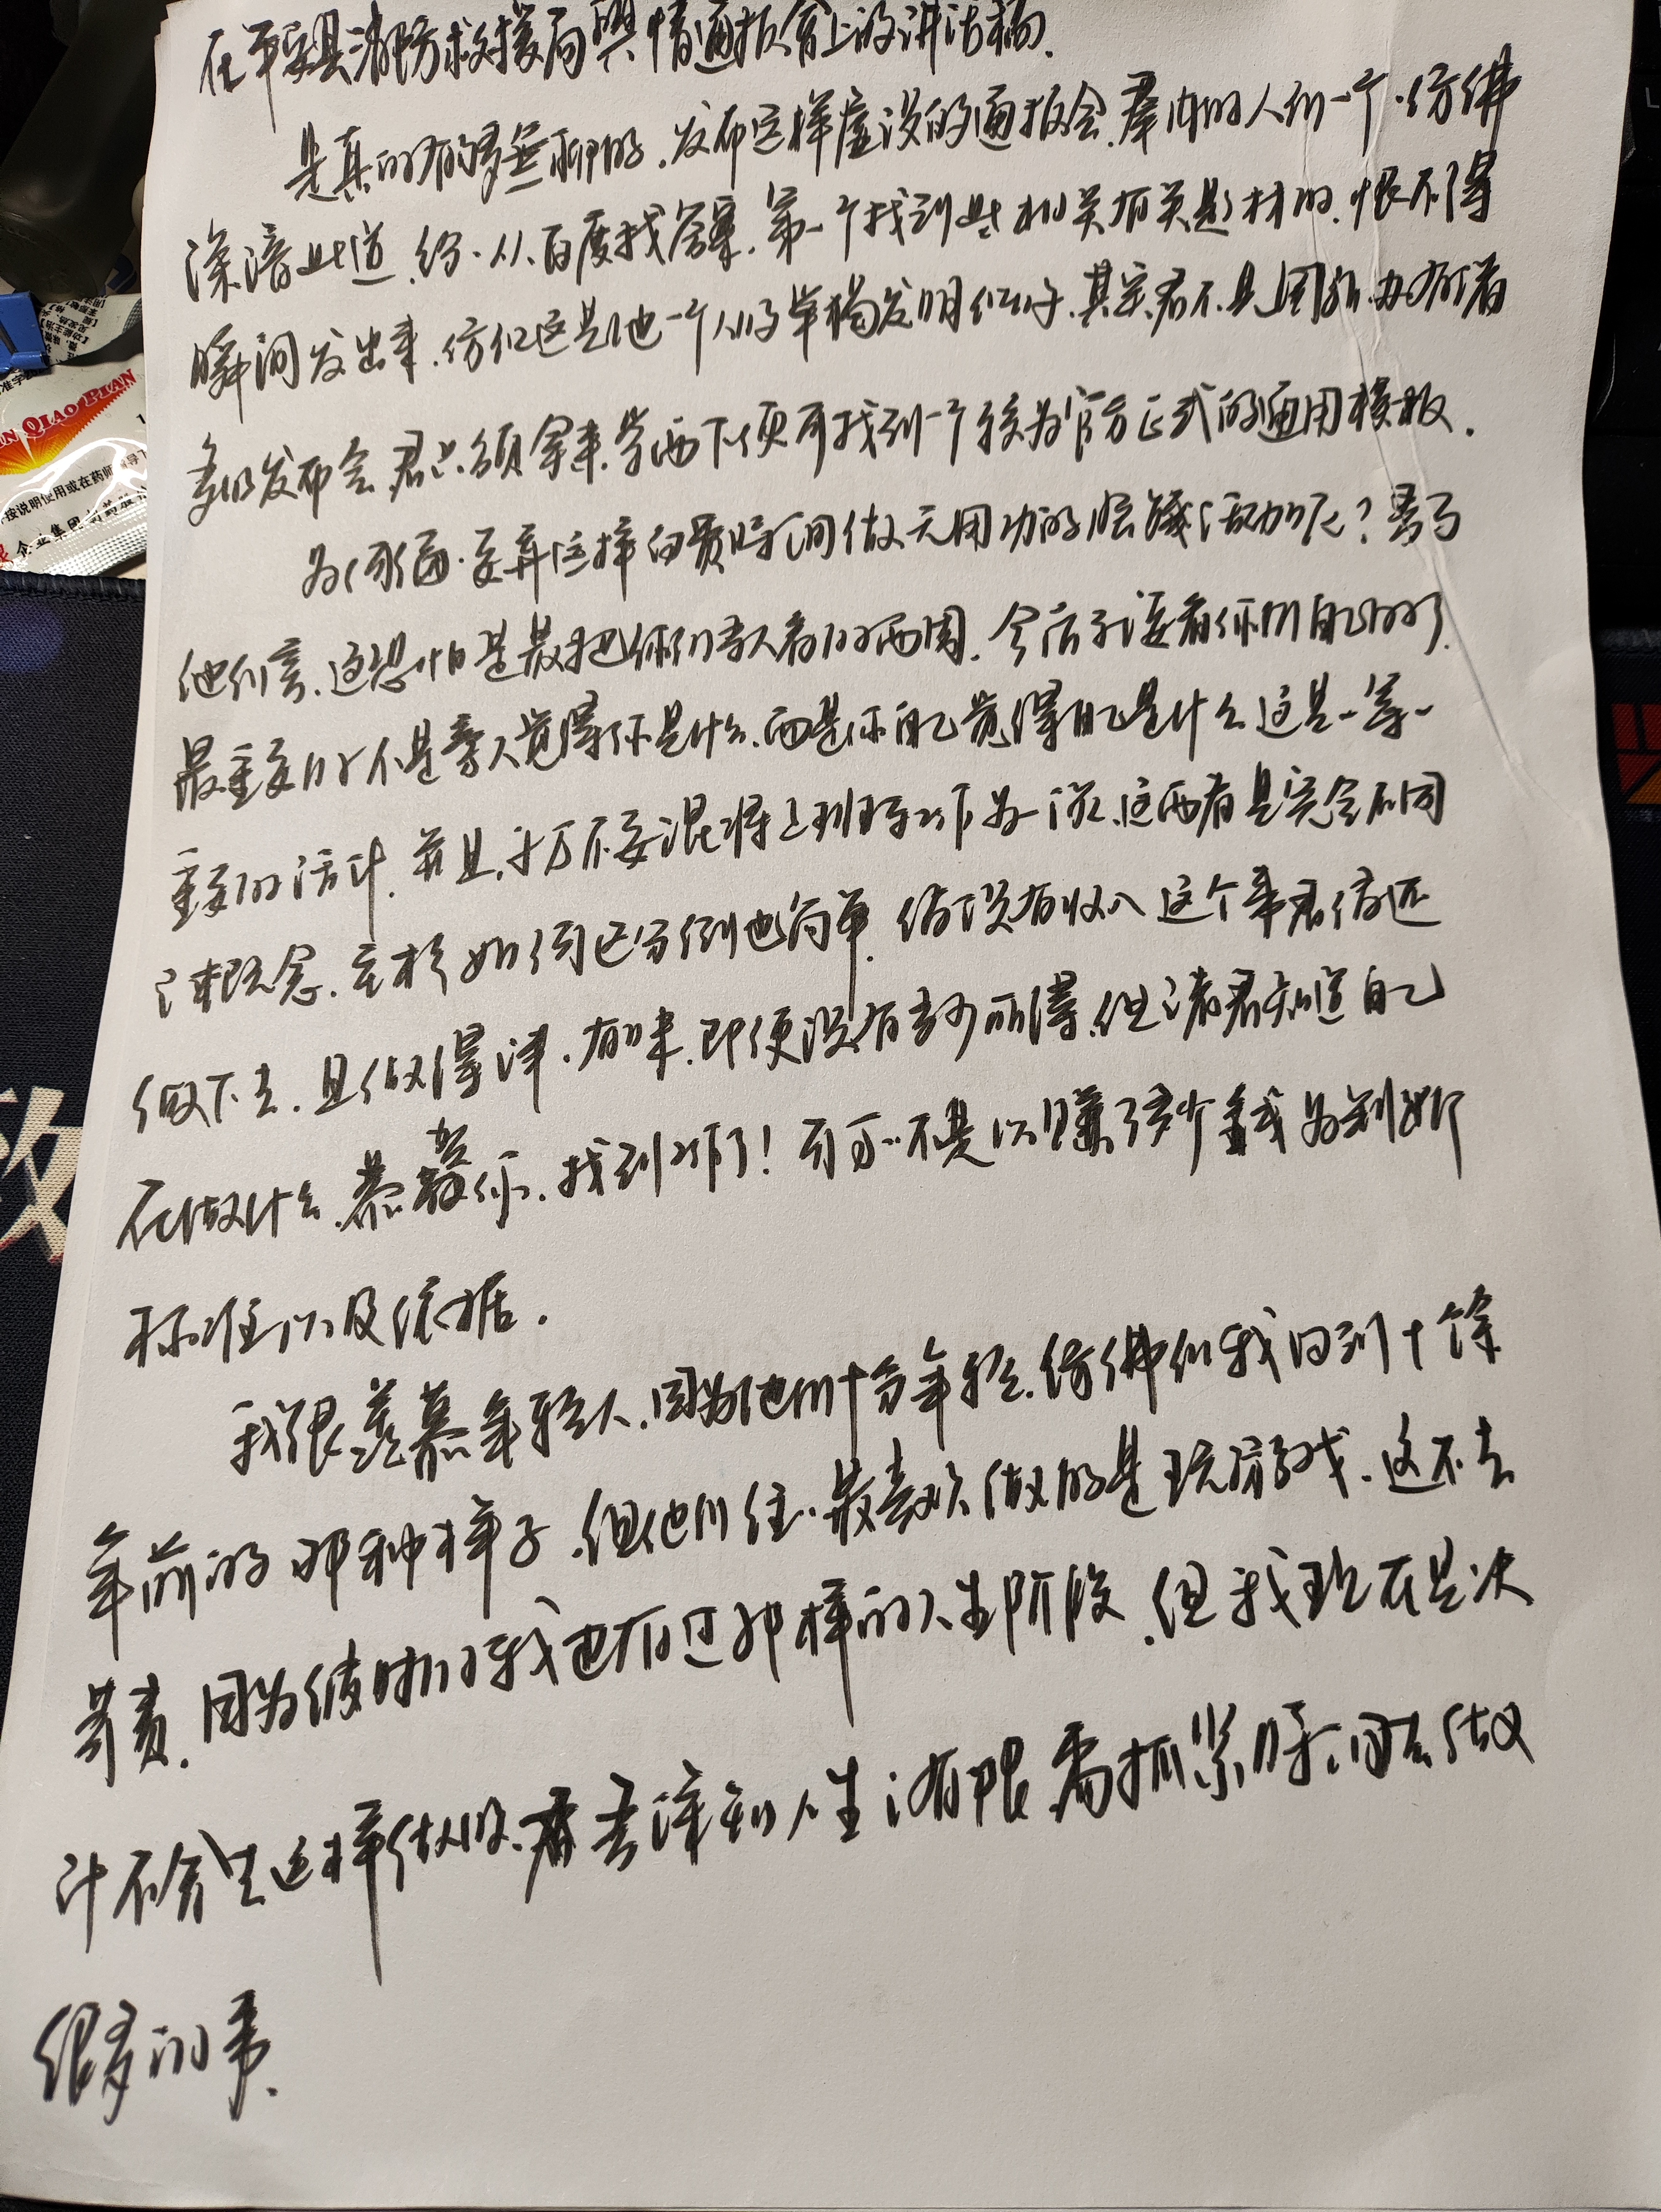 在平安县消防救援局舆情通报会上的讲话稿.
是真的有够无聊的.发布这样虚没的通报会.群内的人们一个·仿佛
深谙此道.纷·从百度找答案.第一个找到此相关有关题材的.恨不得
瞬间发出来.仿似这是他一个人的单独发明似的.其实君不见国新办有着
多的发布会.君只须拿来学两下便可找到一个较为官方正式的通用模板.
为何·要弄这样的费时间做无用功的活动呢?
他们言.这恐怕是最把你们的两周.今后了要看你们自己的了.
最重要的不是旁人觉得你是什么.而是你自己觉得自己是什么这是一等一
重要的活计.并且.千万不要混淆上班与工作为一谈.这两者是完全不同
之概念.至于如何区分倒也简单.倘没有收入这个事君仍还
做下去.且做得津·有味.即便没有多少所得.但诸君知道自己
在做什么.恭贺你.找到工作了!可不是以赚了多少钱为判断
标准以及依据.
我很羡慕年轻人.因为他们十分年轻.仿佛似我回到十馀
年前的那种样子.但他们往·最喜欢做的是玩游戏.这不去
苛责.因为彼时的我也有过那样的人生阶段.但我现在是决
计不会去这样做的.深知人生有限需抓紧时间去做
很多的事.
QIAO PIAN
按说明使用或在药师指导下
企业集团